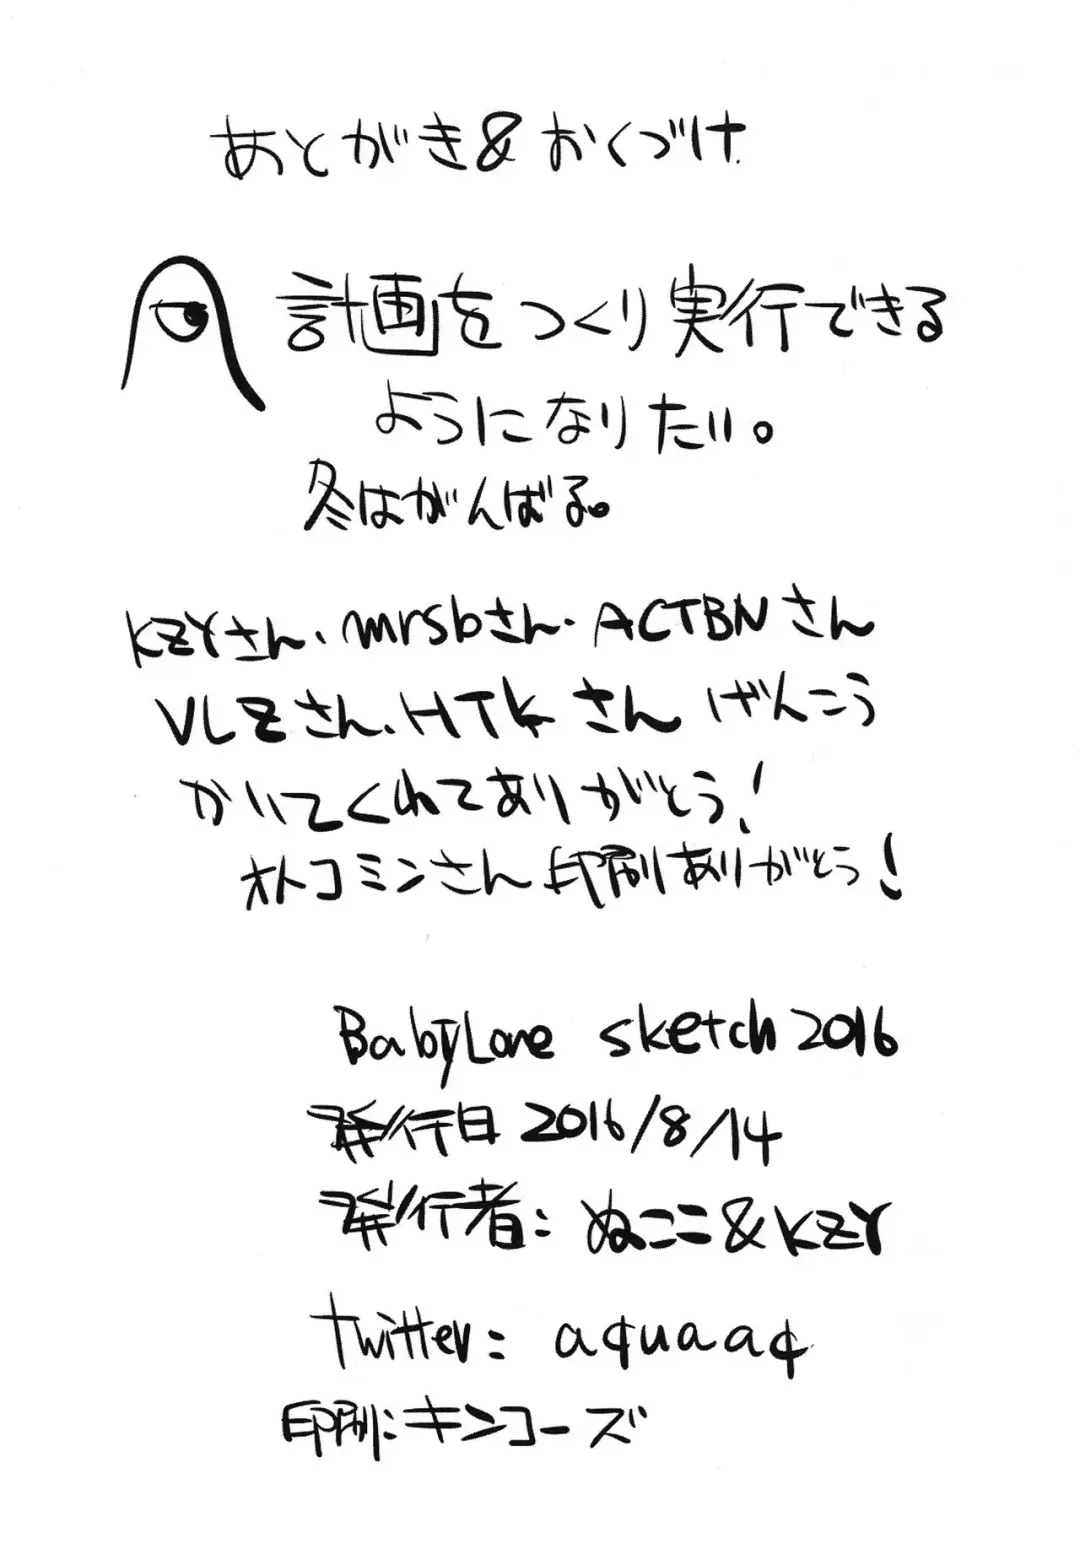 あとがき&おくづけ
計画をつくり実行できる
ようになりたい。
冬はがんばる。
KZYさん、mrsbさん、ACTBNさん
VLZさん、HTKさん げんこう
かいてくれてありがとう!
オトコミンさん印刷ありがとう!
BabyLone sketch 2016
発行日 2016/8/14
発行者:ぬここ&KZY
twitter: aquaa¢
印刷:キンコーズ